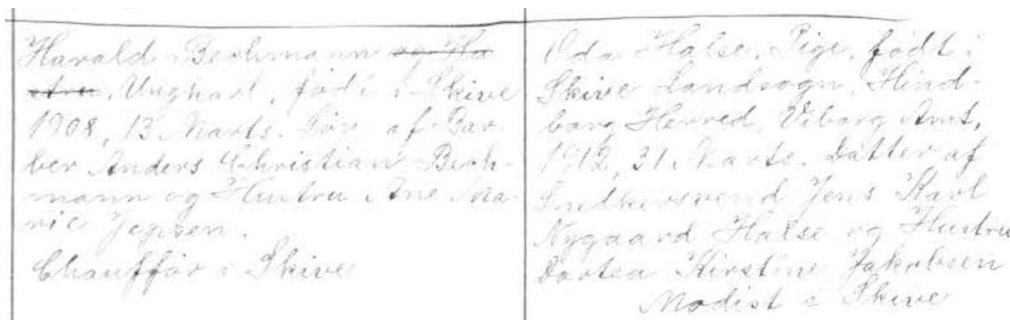 Harald Bechmann og Hu
stru, Ungkarl, født i Skive
1908, 13 Marts. Søn af Bar-
ber Anders Christian Bech-
mann og Hustru Ane Ma-
rie Jepsen.
Chauffør i Skive
Oda Halse, Pige, født i
Skive Landsogn, Hind-
borg Herred, Viborg Amt,
1912, 31 Marts. Datter af
Snedkersvend Jens Karl
Nygaard Halse og Hustru
Dortea Kirstine Jakobsen
Modist i Skive